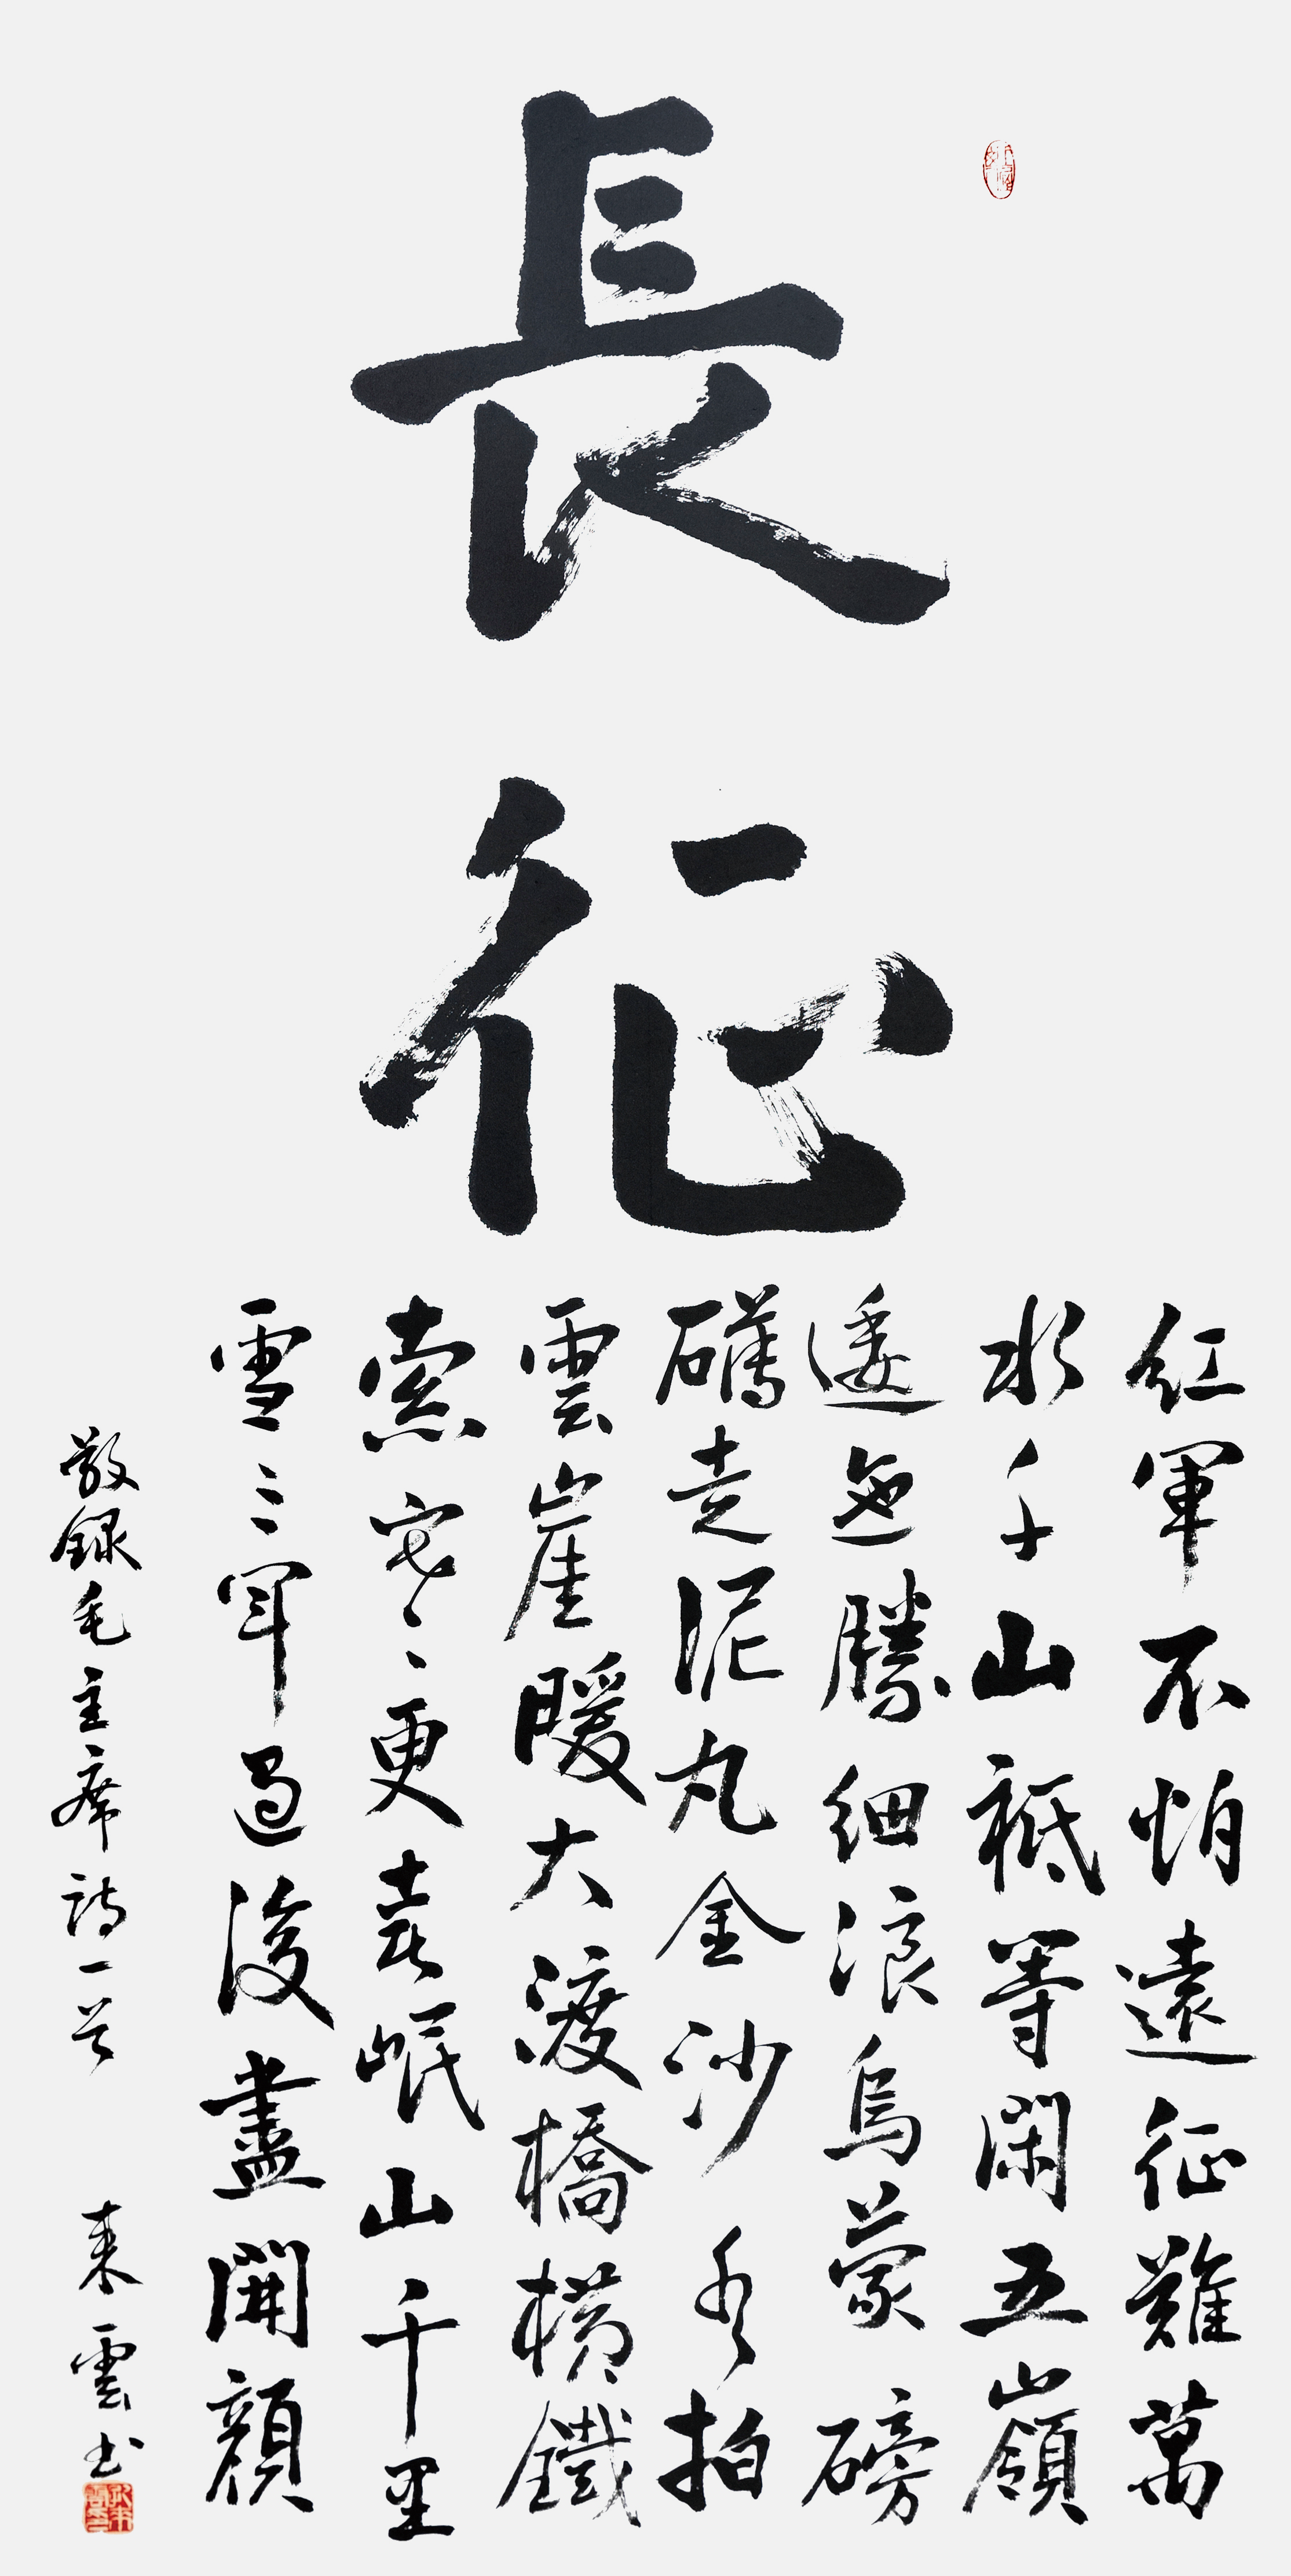 長征
紅軍不怕遠征難萬
水千山祗等閑五嶺
逶迤勝細浪烏蒙磅
礴走泥丸金沙水拍
雲崖暖大渡橋橫鐵
索寒更喜岷山千里
雪三軍過後盡開顏
敬録毛主席詩一首 来雲书